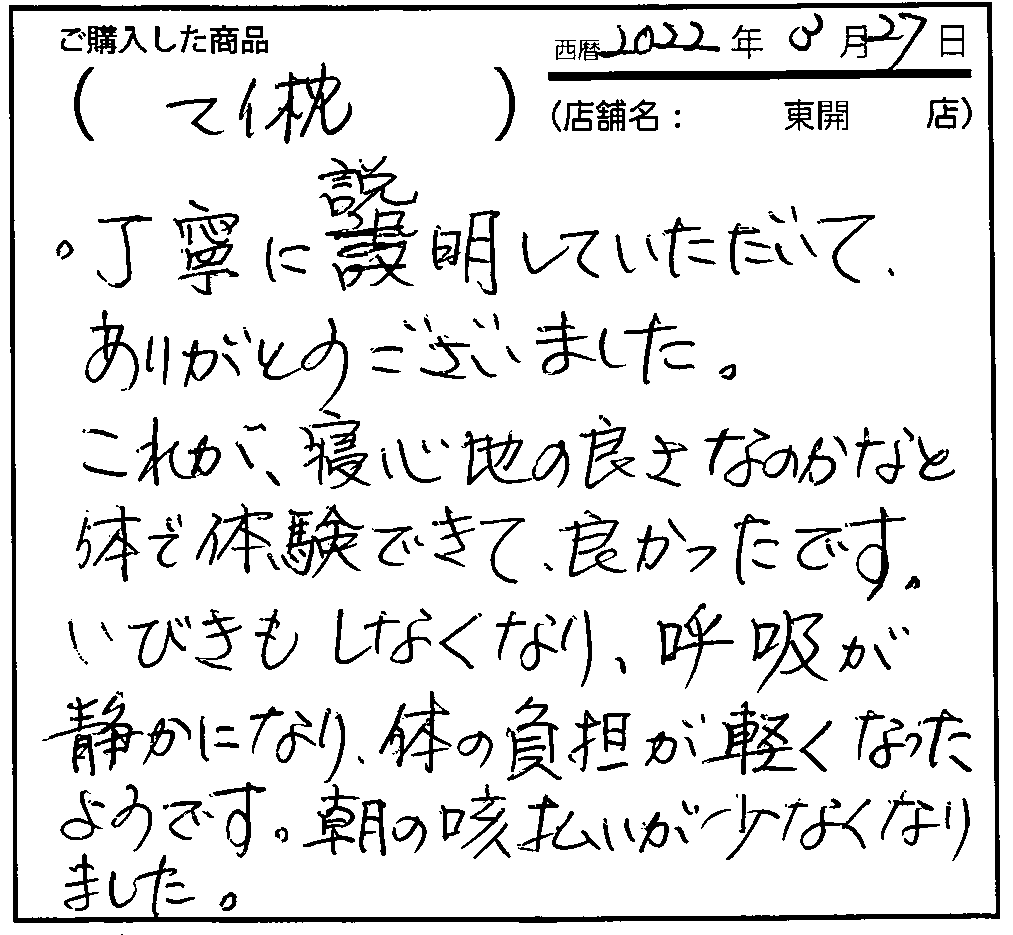 ご購入した商品
西暦2022年 3月27日
(マイ枕)
(店舗名: 東開 店)
。丁寧に説明していただいて、
ありがとうございました。
これが、寝心地の良さなのかなと
体で体験できて、良かったです。
いびきもしなくなり、呼吸が
静かになり、体の負担が軽くなった
ようです。朝の咳払いが少なくなり
ました。